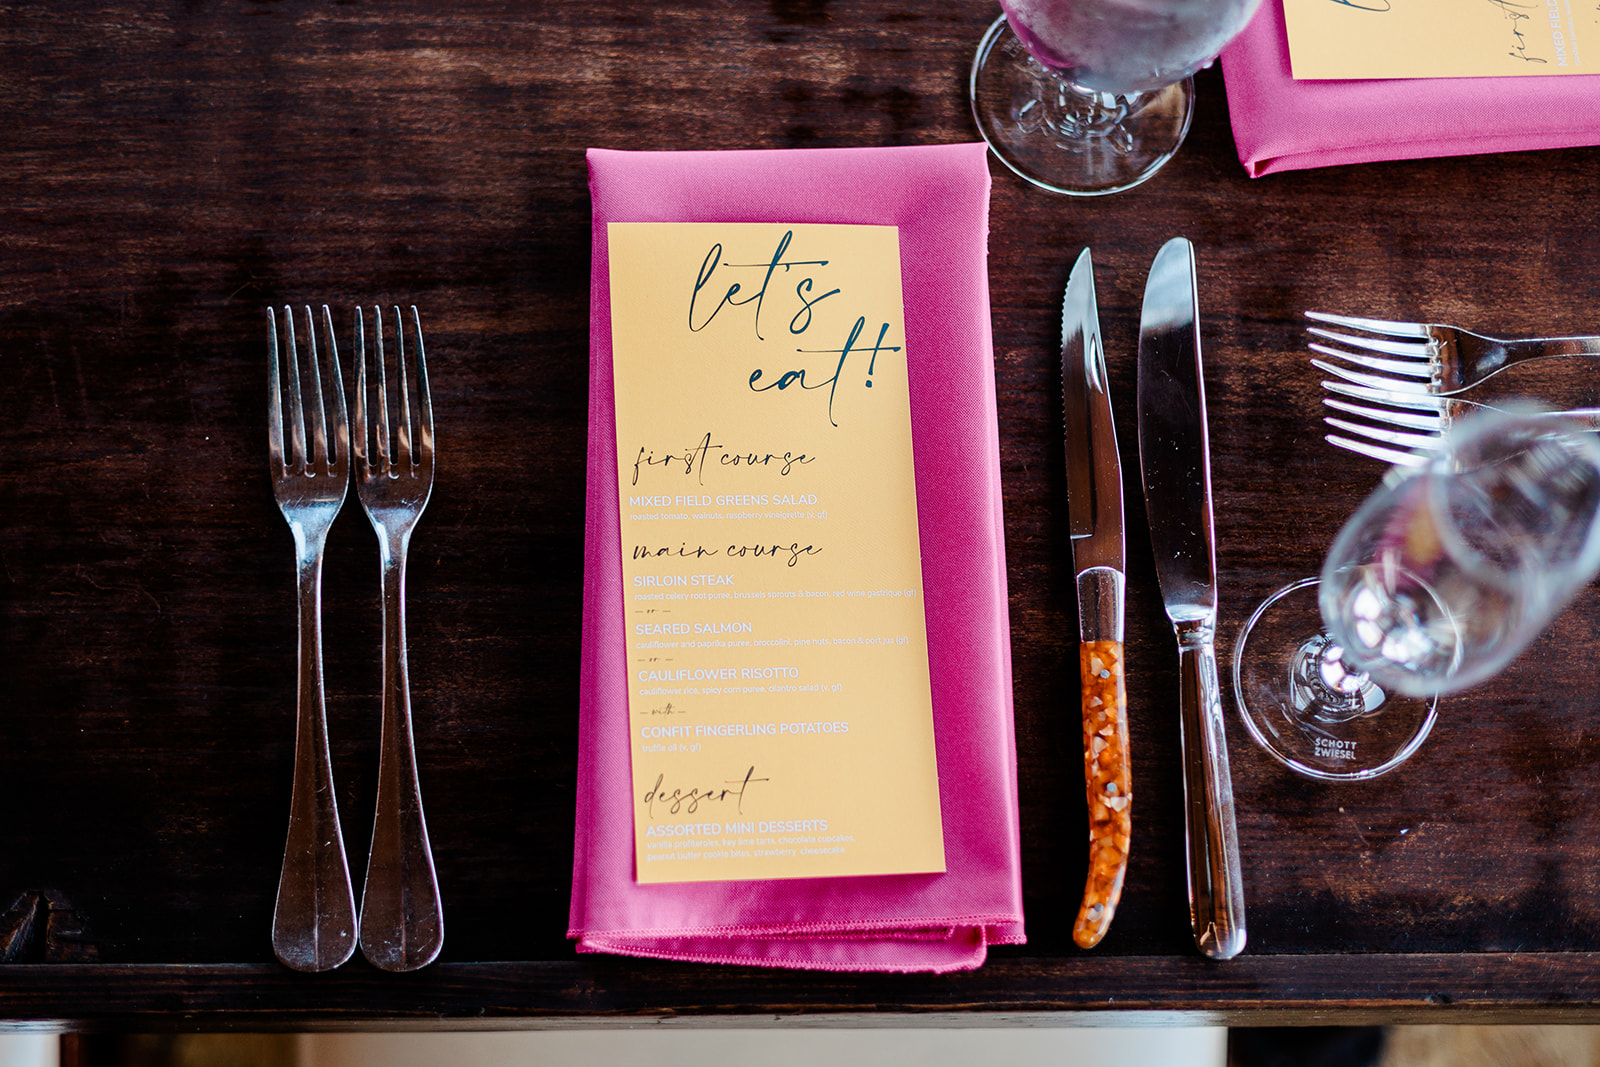 let's
eat!
first course
MIXED FIELD GREENS SALAD
roasted tomato, walnuts, raspberry vinegrette (v, gf)
main course
SIRLOIN STEAK
roasted celery root puree, brussels sprouts & bacon, red wine gastrique (gf)
— or —
SEARED SALMON
cauliflower and paprika puree, broccolini, pine nuts, bacon & port jus (gf)
— or —
CAULIFLOWER RISOTTO
cauliflower rice, spicy corn puree, cilantro salad (v, gf)
— with —
CONFIT FINGERLING POTATOES
truffle oil (v, gf)
dessert
ASSORTED MINI DESSERTS
vanilla profiteroles, key lime tarts, chocolate cupcakes,
peanut butter cookie bites, strawberry cheesecake
SCHOTT
ZWIESEL
first
MIXED FIELD